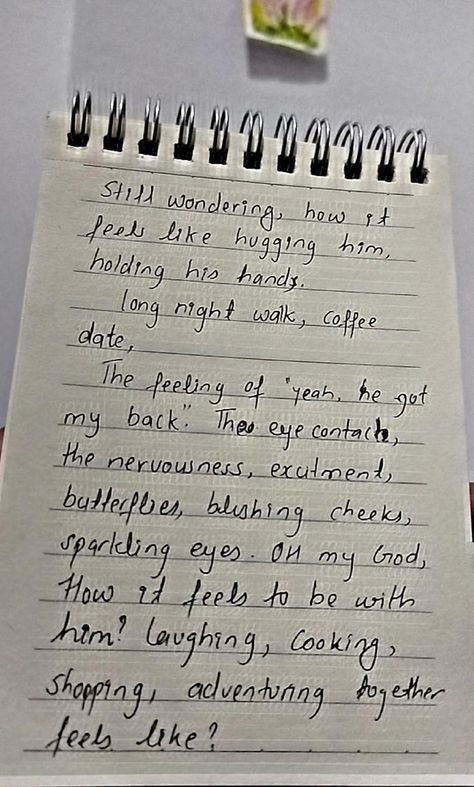 Still wondering, how it
feels like hugging him,
holding his hands.
long night walk, coffee
date,
The feeling of "yeah, he got
my back". The eye contact,
the nervousness, exutment,
butterflies, blushing cheeks,
sparkling eyes. OH my God,
How it feels to be with
him? laughing, cooking,
shopping, adventuring together
feels like?